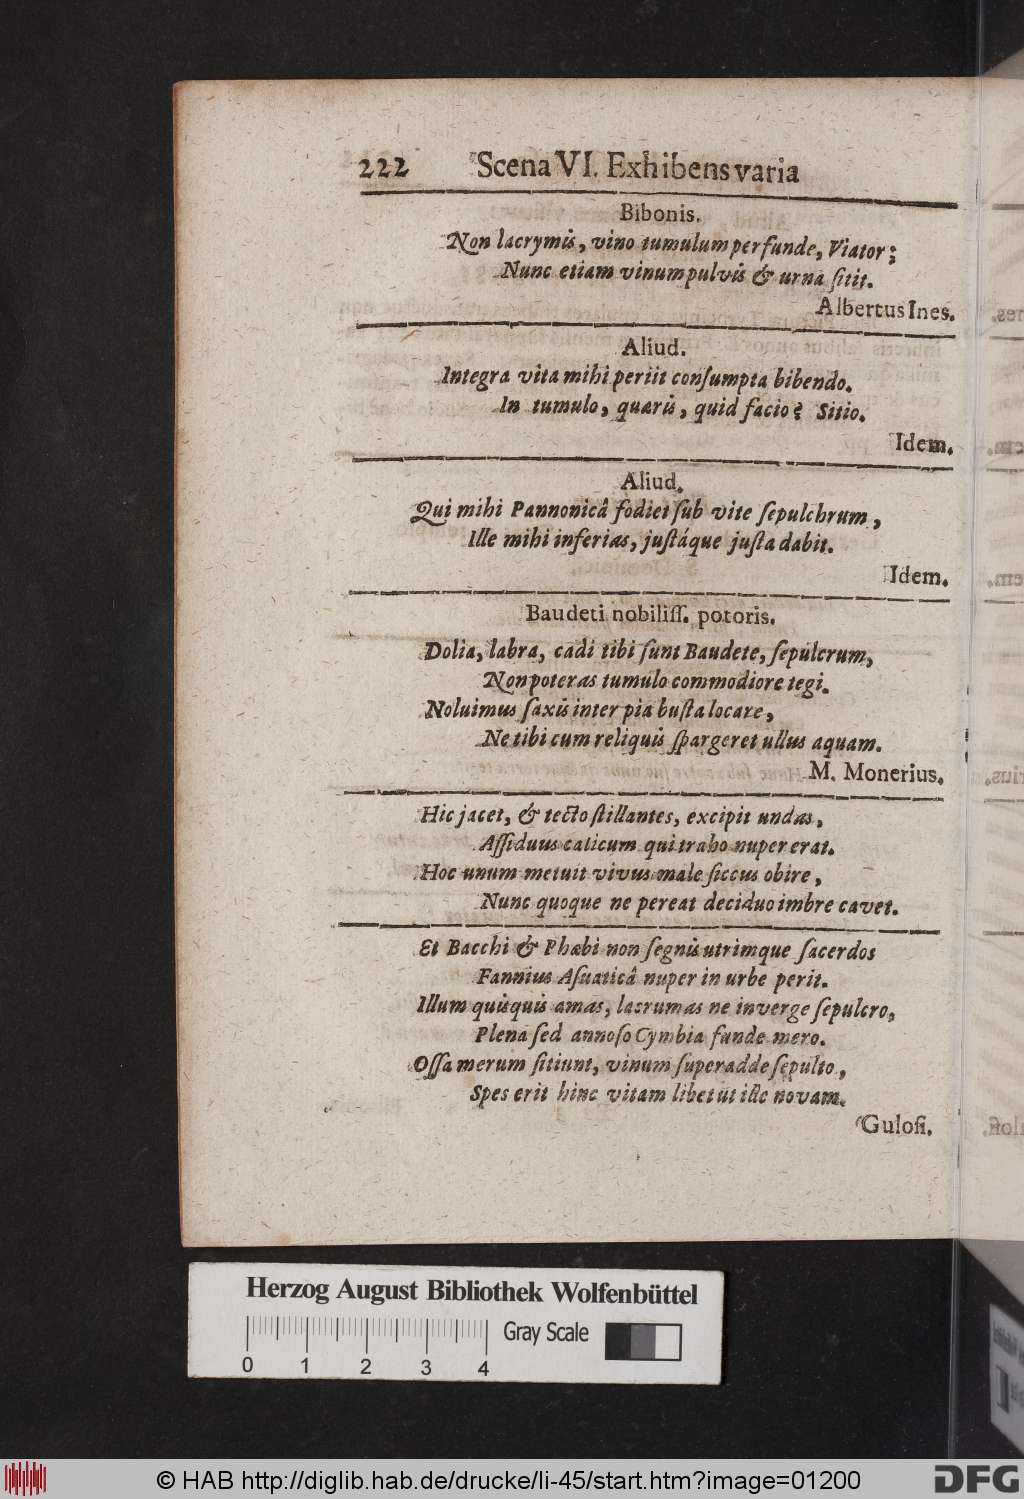 222 Scena VI. Exhibens varia
Bibonis.
Non lacrymis, vino tumulum perfunde, Viator;
Nunc etiam vinum pulvis & urna ſitit.
Albertus Ines.
Aliud.
Integra vita mihi periit conſumpta bibendo.
In tumulo, quæris, quid facio? Sitio.
Idem.
Aliud.
Qui mihi Pannonicâ fodiet ſub vite ſepulchrum,
Ille mihi inferias, juſtáque juſta dabit.
Idem.
Baudeti nobiliſſ. potoris.
Dolia, labra, cadi tibi ſunt Baudete, ſepulcrum,
Non poteras tumulo commodiore tegi.
Noluimus ſaxis inter pia buſta locare,
Ne tibi cum reliquis ſpargeret ullus aquam.
M. Monerius.
Hic jacet, & tecto ſtillantes, excipit undas,
Aſſiduus calicum qui trabo nuper erat.
Hoc unum metuit vivus male ſiccus obire,
Nunc quoque ne pereat deciduo imbre cavet.
Et Bacchi & Phœbi non ſegnis utrimque ſacerdos
Fannius Aſuaticâ nuper in urbe perit.
Illum quisquis amas, lacrumas ne inverge ſepulcro,
Plena ſed annoſo Cymbia funde mero.
Oſſa merum ſitiunt, vinum ſuperadde ſepulto,
Spes erit hinc vitam libet ut ille novam.
Guloſi.
Herzog August Bibliothek Wolfenbüttel
Gray Scale
0 1 2 3 4
© HAB http://diglib.hab.de/drucke/li-45/start.htm?image=01200
DFG